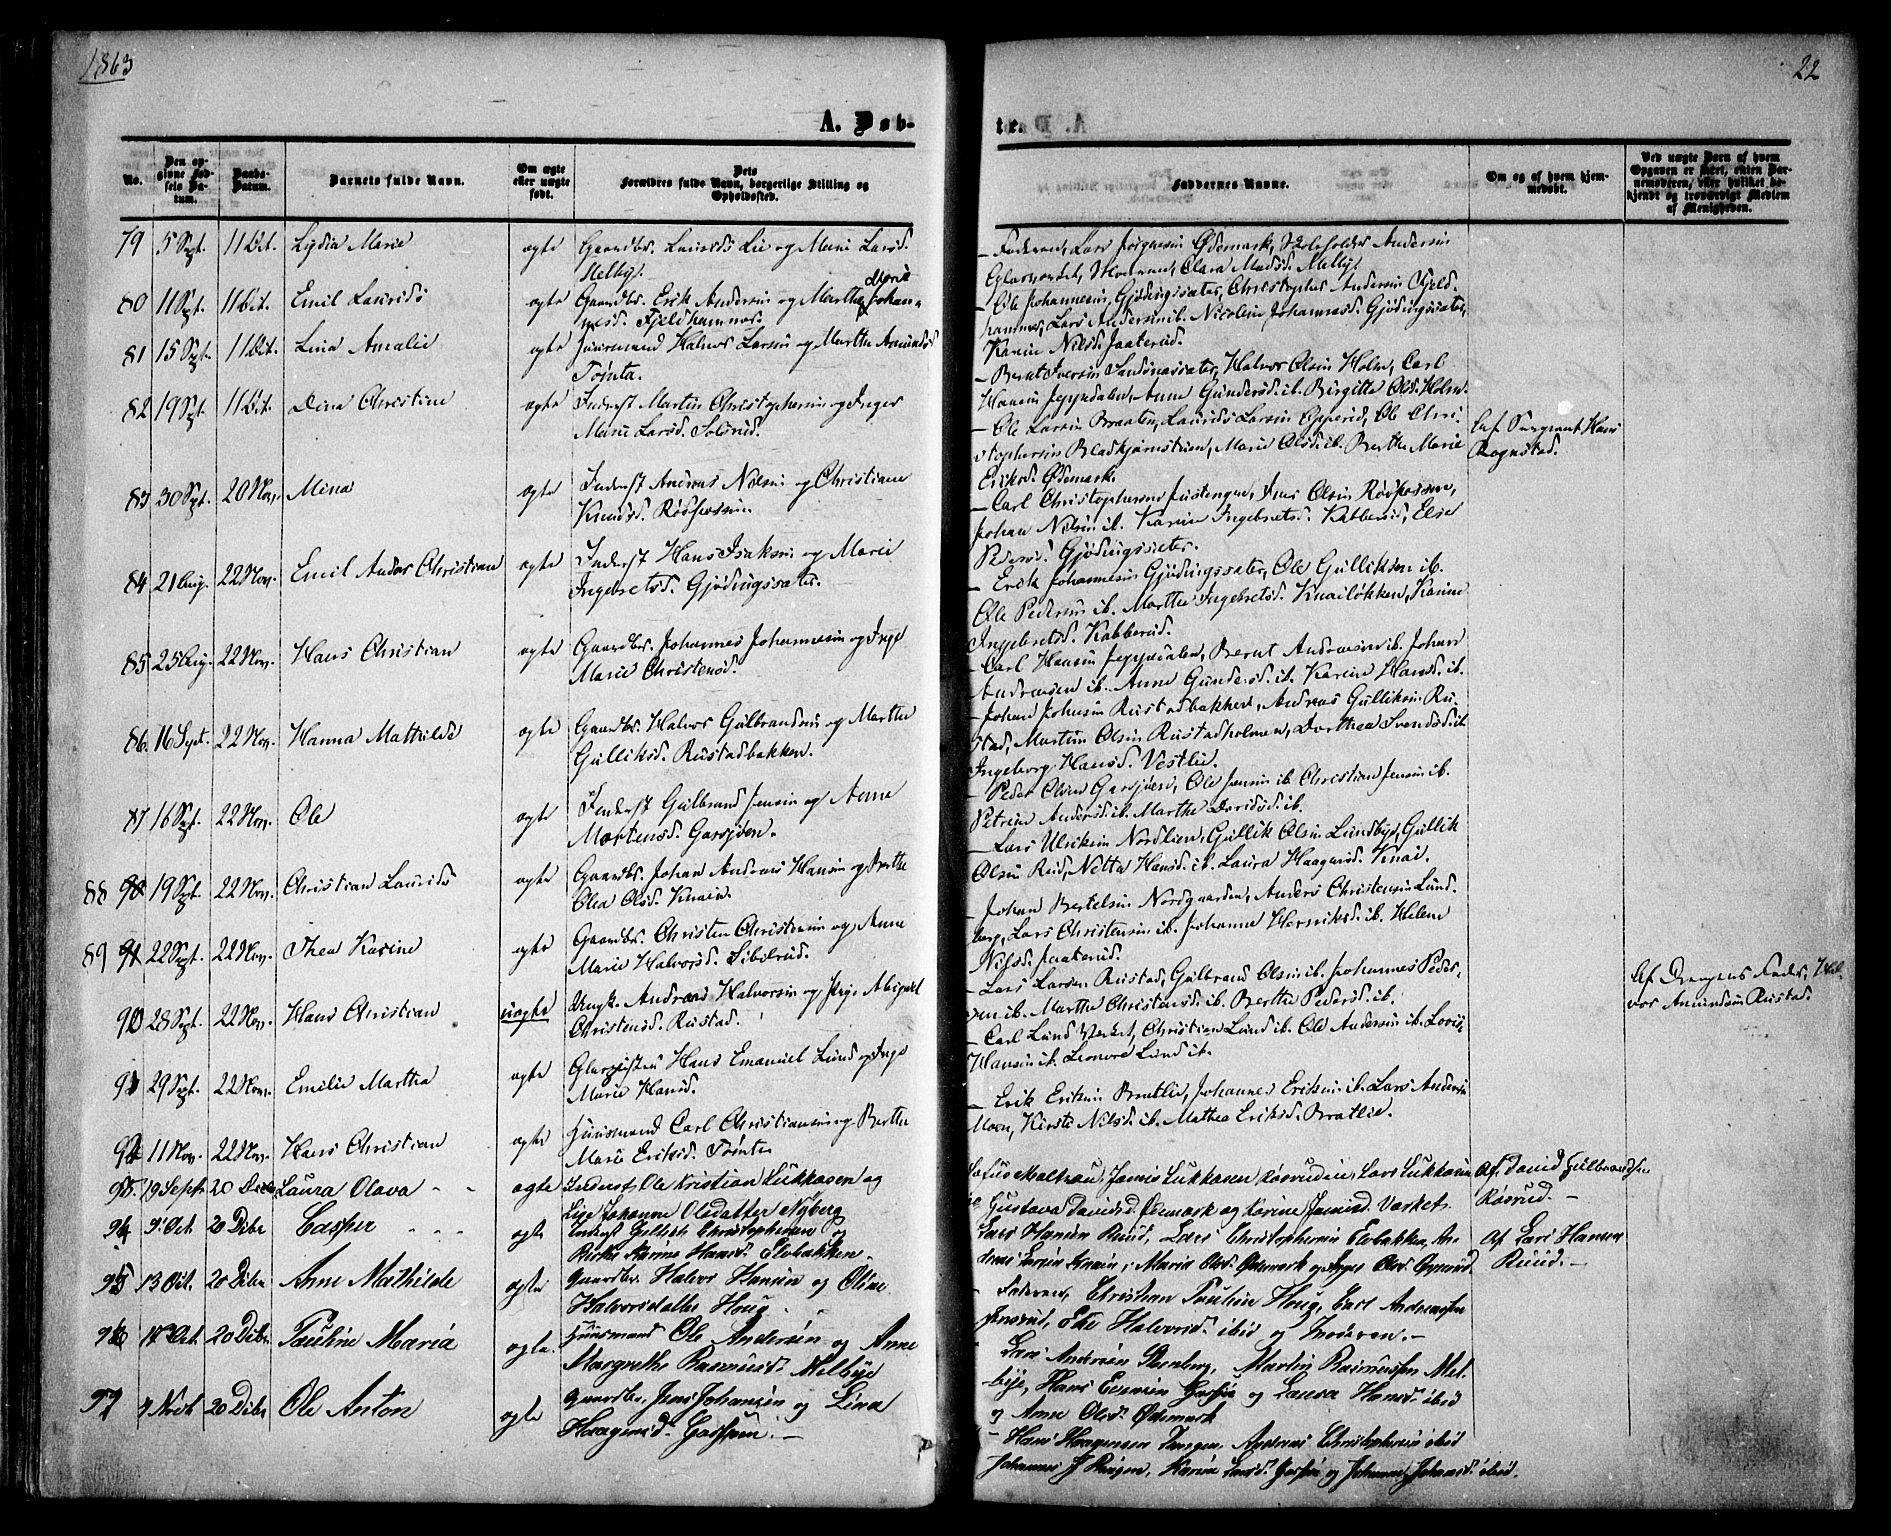 1863
22
A. Døb-
te.
No.
Den op-
givne Fød-
sels Da-
tum.
Daabs-
Datum.
Barnets fulde Navn.
Om ægte
eller uægte
født.
Dets
Forældres fulde Navn, borgerlige Stilling og
Opholdssted.
Faddernes Navne.
Om og af hvem hjem-
medøbt.
Ved uægte Barn af hvem
Opgaven er skeet, enten Bar-
nemoderen, eller hvilket be-
kjendt og troværdigt Medlem
af Menigheden.
79 5 Sept. 11 Oct. Lydia Marie ægte Gaardbr. Laurids Lie og Mari Larsd.
Melby.
– Faderen, Lars Jørgensen Ødemark, Andersen
Glasværket, Clara Madsd. Melby.
80 11 Sept. 11 Oct. Emil Laurids ægte Gaardbr. Erik Andersen og Marthe Maria Johan-
nesd. Fjeldhammer.
– Ole Johannesen Gjødingsæter, Christopher Andersen Fjeld-
hammer, Lars Andersen ib. Nicoline Johannesd. Gjødingsæter,
Karin Nilsd. Jaaterud.
81 15 Sept. 11 Oct. Lina Amalie ægte Huusmand Halvor Larsen og Marthe Amundsd
Tomta.
– Bernt Iversen Halvor Olsen Holm, Carl
Hansen Jeppedalen, Anne Gundersd. ib. Birgitte Olsd. Holm.
82 19 Sept. 11 Oct. Dina Christine ægte Inderst Martin Christophersen og Inger
Marie Larsd. Solerud.
– Ole Larsen Braaten, Laurids Larsen Opperud, Ole Chri-
stophersen Bladkjærnstuen, Marie Olsd. ib. Berthe Marie
Eriksd. Ødemark.
af Sergeant Hans
Rognstad.
83 30 Sept. 20 Nov. Mina ægte Inderst Andreas Nilsen og Christiane
Knudsd. Røsfossen.
– Carl Christophersen Justengen, Jens Olsen Røsfossen,
Johan Nilsen ib. Karine Ingebretsd. Kabberud, Else
Pedersd. Gjødingsæter.
84 21 Aug. 22 Nov. Emil Anders Christian ægte Inderst Hans Isaksen og Marie
Ingebretsd. Gjødingsæter.
– Erik Johannesen Gjødingsæter, Ole Gulliksen ib.
Ole Pedersen ib. Marthe Ingebretsd. Knailøkken, Karine
Ingebretsd. Kabberud.
85 25 Aug. 22 Nov. Hans Christian ægte Gaardbr. Johannes Johannesen og Inge
Marie Christensd.
– Carl Hansen Jeppedalen, Bernt Andreassen ib. Johan
Andreassen ib. Anne Gundersd. ib. Karine Hansd. ib.
86. 16 Sept. 22 Nov. Hanna Mathilde ægte Gaardbr. Halvor Gulbrandsen og Marthe
Gulliksd. Rustadbakken.
– Johan Johnsen Rustadbakken, Andreas Gulliksen Ru-
stad, Martin Olsen Rustadholmen, Dorthea Svendsd. ib.
Ingeborg Hansd. Vestlie.
87 16 Sept. 22 Nov. Ole ægte Inderst Gulbrand Jensen og Anne
Mortensd. Garsjøen.
– Peder Olsen Garsjøen, Ole Jensen ib. Christian Jensen ib.
Petrine Andersd. ib. Marthe Davidsd. ib.
88 19 Sept. 22 Nov. Christian Laurids ægte Gaardbr. Johan Andreas Hansen og Berthe
Olea Olsd. Knaien.
– Lars Ulriksen Nordlien, Gullik Olsen Lundby, Gullik
Olsen Reid, Netta Hansd. ib. Laura Haagensd. Knai.
89 22 Sept. 22 Nov. Thea Karine ægte Gaardbr. Christen Christensen og Anne
Marie Halvorsd. Sibilrud.
– Johan Bertelsen Nordgaarden, Anders Christensen Lund-
berg, Lars Christensen ib. Johanne Henriksd. ib. Helene
Nilsd. Jaaterud.
90 28 Sept. 22 Nov. Hans Christian uægte Ungk. Andreas Halvorsen og Pige Abigael
Christensd. Rustad.
– Lars Larsen Rustad, Gulbrand Olsen ib. Johannes Peder-
sen ib. Marthe Christensd. ib. Berthe Pedersd. ib.
Af Drengens Fader, Hal-
vor Amundsen Rustad.
91 29 Sept. 22 Nov. Emilie Martha ægte Glaspuster Hans Emanuel Lund og Inge
Marie Hansd.
– Carl Lund Verket, Christian Lund ib. Ole Andersen ib. Lovise
Hansen ib. Leonore Lund ib.
92 11 Nov. 22 Nov. Hans Christian ægte Huusmand Carl Christiansen og Berthe
Marie Eriksd. Tomta
– Erik Eriksen Bratlie, Johannes Eriksen ib. Lars Andersen
Moen, Kirsti Nilsd. ib. Mathea Eriksd. Bratlie.
93. 19 Sept. 20 Debr Laura Olava ægte Inderst Ole Kristian Lukkasen og
Lise Johanne Olsdatter Nyberg
James Lukkasen Røsruden, Lars Lukkasen
Gustava Davidsd. Ødemark og Karine Jansd. Værket.
Af David Gulbrandsen
Røsrud. –
94 9 Oct. 20 Debr Casper ægte Inderst Gullick Christophersen og
Berthe Karine Hansd. Elvbakken.
Lars Hansen Ruud, Lars Christophersen Elvbakken, An-
dreas Larsen Knaien, Maria Olsd. Ødemark og Inger Olsd.
Af Lars Hansen
Ruud. –
95 13 Oct. 20 Debr Anne Mathilde ægte Gaardbr. Halvor Hansen og Oline
Halvorsdatter Houg.
Faderen, Christian Paulsen Houg, Carl Andreassen
Halvorsd. ibid og Moderen. –
96 14 Oct. 20 Debr Pauline Maria ægte. Huusmand Ole Andersen og Anne
Margrethe Rasmusd. Melbye
Lars Andersen Stenberg, Martin Rasmussen Mel-
bye, Hans Garsjøe og Laura Hansd. ibid
og Anne Olsd. Ødemark
97 4 Novb 20 Debr Ole Anton ægte Gaardbr. Jens Johansen og Lina
Haagensd. Garsjøen. –
– Hans Haagensen Andreas Christophersen ibid
Johannes Ringen, Karine Larsd. Garsjøe og Johanne Johansd. ibid.